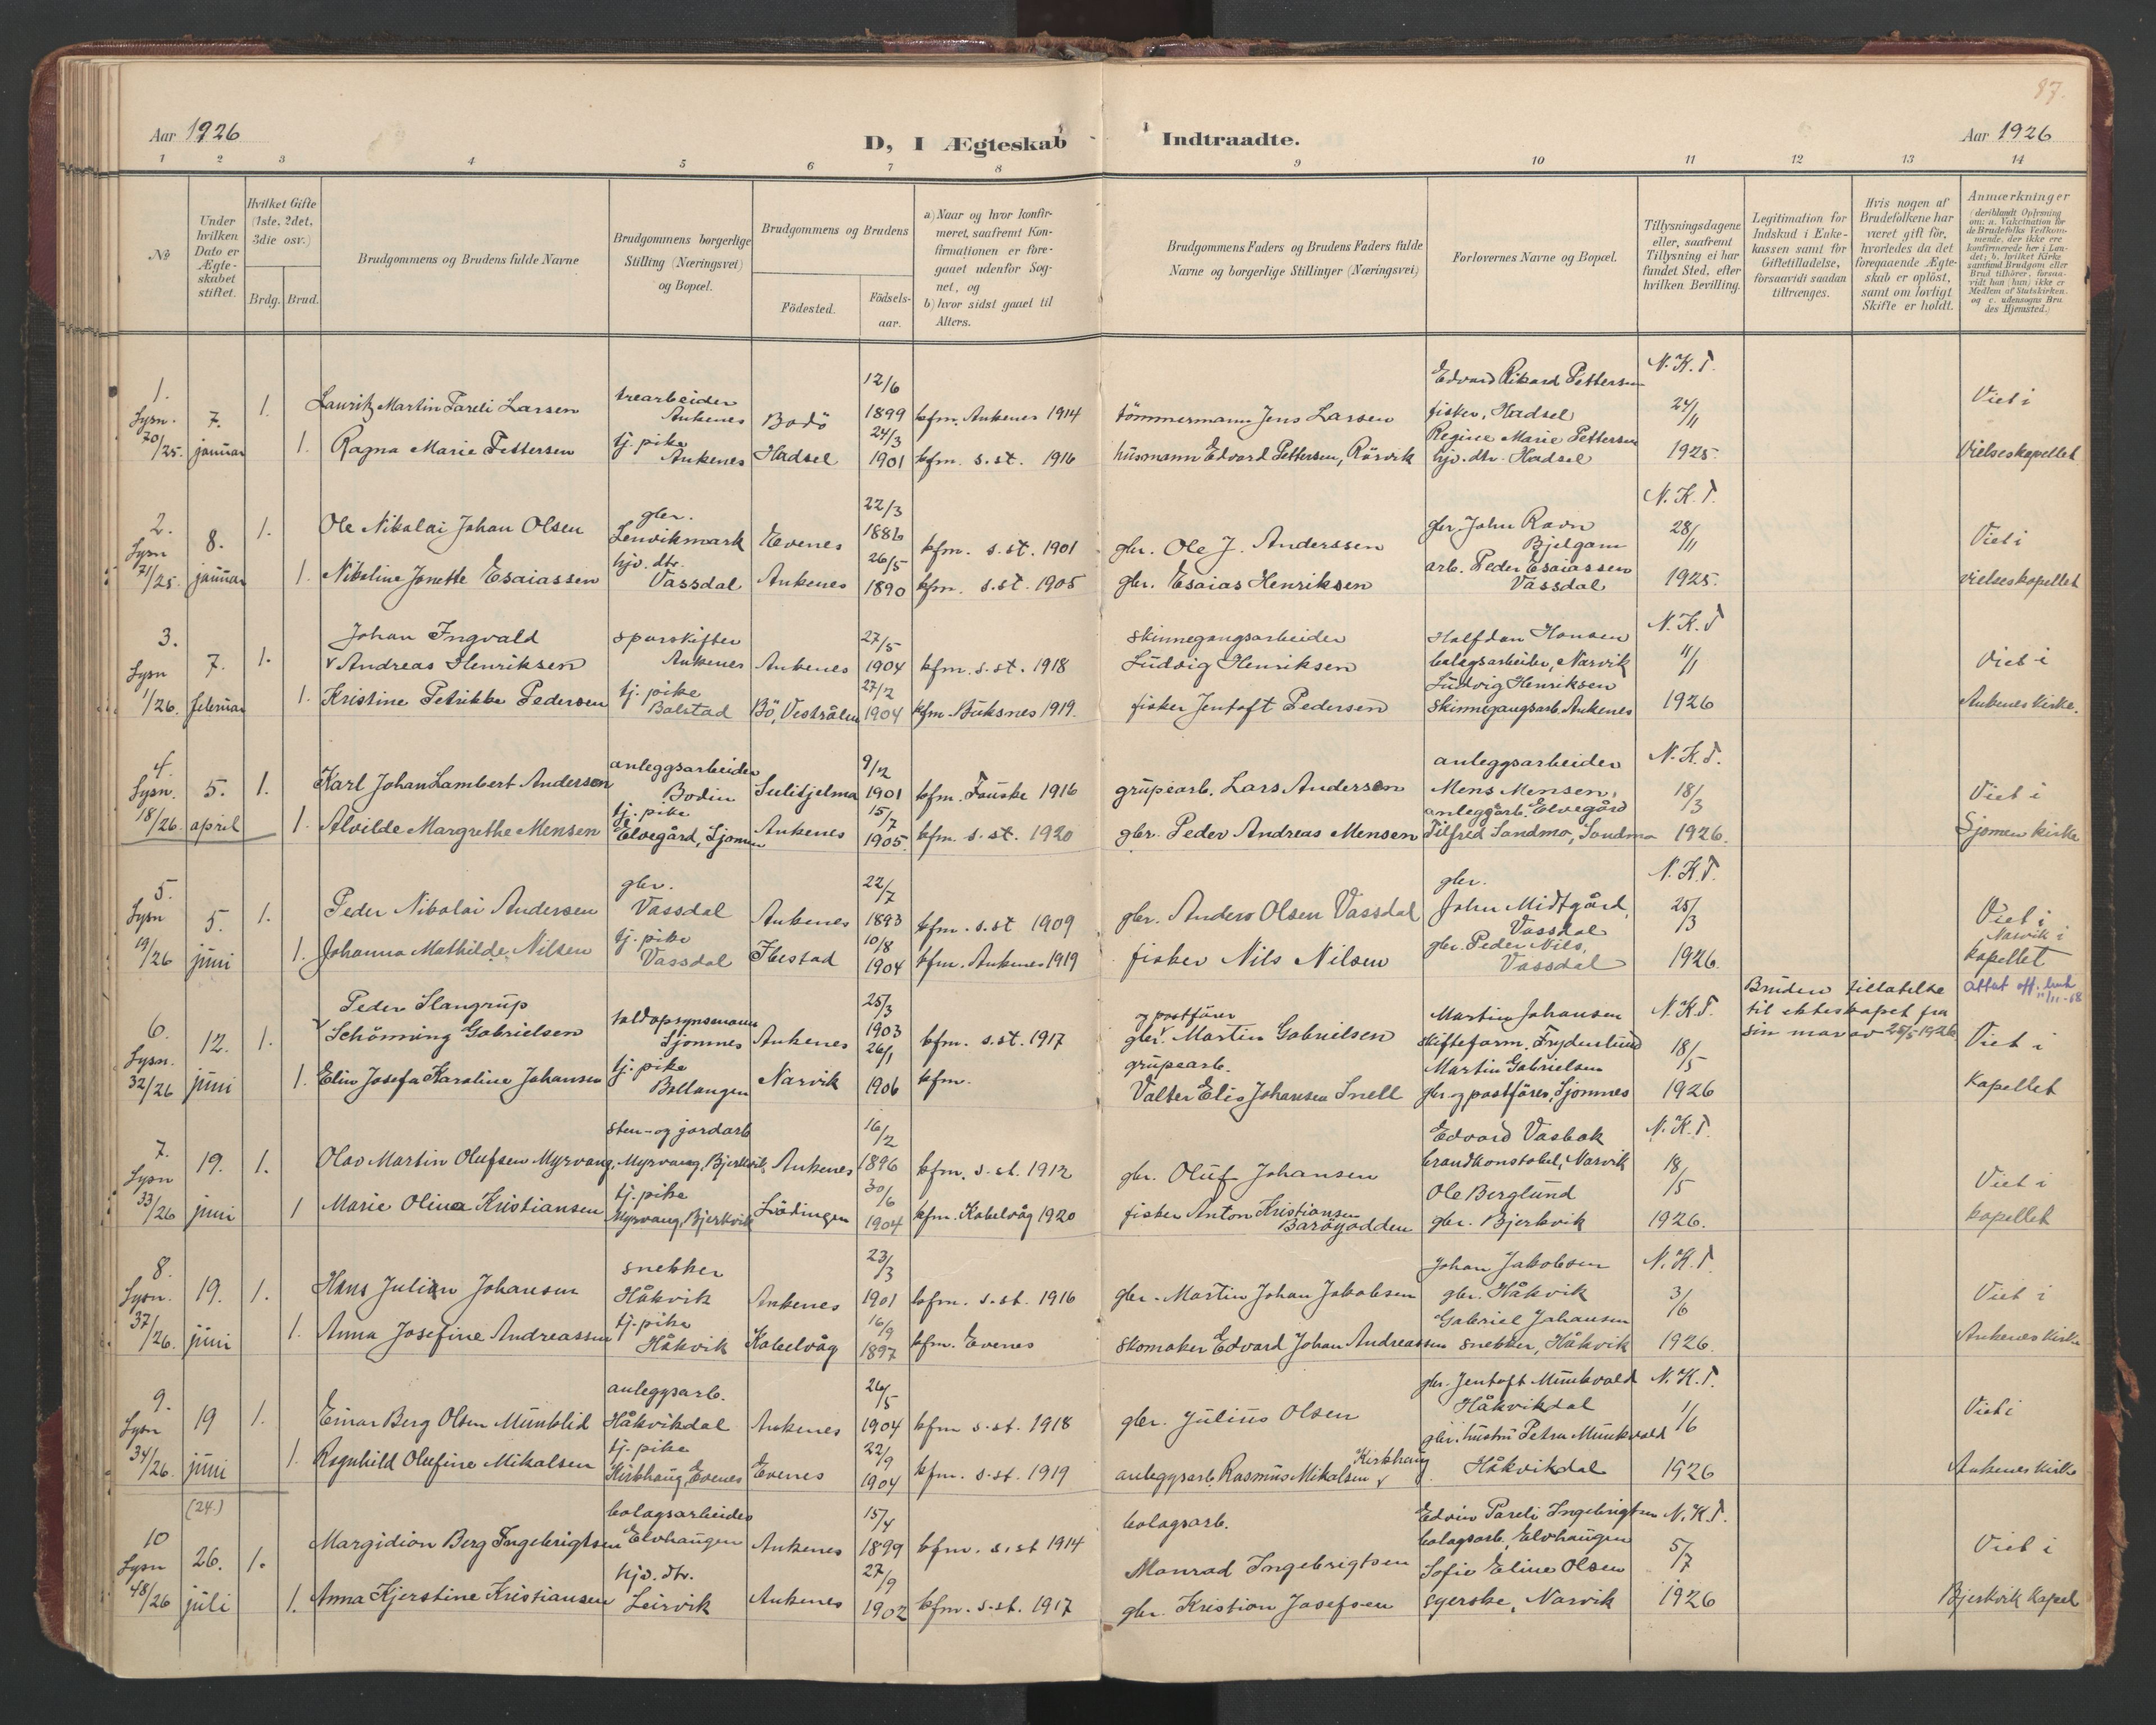 87.
Aar 1926
D, I Ægteskab Indtraadte.
Aar 1926
1 2 3 4 5 6 7 8 9 10 11 12 13 14
No
Under hvilken Dato er Ægteskabet stiftet.
Hvilket Gifte (1ste, 2det, 3die osv.)
Brdg. Brud.
Brudgommens og Brudens fulde Navne
Brudgommens borgerlige Stilling (Næringsvei) og Bopæl.
Brudgommens og Brudens
Födested. Födselsaar.
a) Naar og hvor konfirmeret, saafremt Konfirmationen er foregaaet udenfor Sognet, og
b) hvor sidst gaaet til Alters.
Brudgommens Faders og Brudens Faders fulde Navne og borgerlige Stillinger (Næringsvei)
Forlovernes Navne og Bopæl.
Tillysningsdagene eller, saafremt Tillysning ei har fundet Sted, efter hvilken Bevilling.
Legitimation for Indskud i Enkekassen samt for Giftetilladelse, forsaavidt saadan tiltrænges.
Hvis nogen af Brudefolkene har været gift för, hvorledes da det foregaaende Ægteskab er oplöst, samt om lovligt Skifte er holdt.
Anmærkninger
(deriblandt Oplysning om: a. Vakcination for de Brudefolks Vedkommende, der ikke ere konfirmerede her i Landet; b. hvilket Kirkesamfund Brudgom eller Brud tilhörer, forsaavidt han (hun) ikke er Medlem af Statskirken, og c. udensogns Brudes Hjemsted.)
1. Lysn. 70/25. 7. januar 1.
Lauritz Martin Pareli Larsen trearbeider Ankenes Bodö 12/6 1899 kfm. Ankenes 1914 tömmermann Jens Larsen Edvard Rikard Pettersen fisker, Hadsel N.K.T. 24/11 1925. Viet i
1. Ragna Marie Pettersen tj. pike Ankenes Hadsel 24/3 1901 kfm. s.st. 1916 husmann Edvard Pettersen, Rörvik Regine Marie Pettersen hjv. dtr. Hadsel Vielseskapellet
2. Lysn 71/25. 8. januar 1.
Ole Nikolai Johan Olsen gbr. Lenvikmark Evenes 22/3 1886 kfm. s.st. 1901 gbr. Ole J. Anderssen gbr. John Ravn Bjelgam N.K.T. 28/11 1925. Viet i
1. Nikoline Jonette Esaiassen hjv. dtr. Vassdal Ankenes 26/5 1890 kfm. s.st. 1905 gbr. Esaias Henriksen arb. Peder Esaiassen Vassdal vielseskapellet
3. Lysn 1/26. 7. februar 1.
Johan Ingvald Andreas Henriksen sporskifter Ankenes Ankenes 27/5 1904 kfm. s.st. 1918 skinnegangsarbeider Ludvig Henriksen Halfdan Hansen bolagsarbeider, Narvik N.K.T 11/1 1926 Viet i
1. Kristine Petrikke Pedersen tj. pike Balstad Bö, Vesterålen 27/2 1904 kfm. Buksnes 1919. fisker Jentoft Pedersen Ludvig Henriksen skinnegangsarb. Ankenes Ankenes kirke.
4. Lysn. 18/26. 5. april 1.
Karl Johan Lambert Andersen anleggsarbeider Bodin Sulitjelma 9/12 1901 kfm. Fauske 1916 grupearb. Lars Andersen anleggsarbeider Mens Mensen, Elvegård N.K.T. 18/3 1926. Viet i
1. Alvilde Margrethe Mensen tj. pike Elvegård, Sjomen Ankenes 15/7 1905. kfm. s.st. 1920 gbr. Peder Andreas Mensen anleggarb. Tilfred Sandmo, Sandmo Sjomen kirke
5. Lysn 19/26 5. juni 1.
Peder Nikolai Andersen gbr. Vassdal Ankenes 22/7 1893 kfm. s.st 1909 gbr. Anders Olsen Vassdal gbr. John Midtgård, Vassdal N.K.T. 25/3 1926. Viet i Narvik i
1. Johanna Mathilde Nilsen tj. pike Vassdal Ibestad 10/8 1904 kfm. Ankenes 1919 fisker Nils Nilsen gbr. Peder Nils. Vassdal kapellet
6. Lysn. 32/26 12. juni 1.
Peder Slangrup Schönning Gabrielsen toldopsynsmann Sjomnes Ankenes 25/3 1903 kfm. s.st. 1917 gbr. og postförer Martin Gabrielsen Martin Johansen skifteform. Frydenlund N.K.T. 18/5 1926 Bruden tillatelse til ekteskapet fra sin mor av 25/5 1926 attat off. bruk 11/11-58 Viet i
1. Elin Josefa Karoline Johansen tj. pike Ballangen Narvik 26/1 1906 kfm. grupearb. Valter Elis Johansen Snell Martin Gabrielsen gbr. og postförer, Sjomnes Kapellet
7. Lysn 33/26 19. juni 1.
Olav Martin Olufsen Myrvang sten- og jordarb Myrvang, Bjerkvik, Ankenes 16/2 1896 kfm. s.st. 1912 gbr. Oluf Johansen Edvard Vasbak brandkonstabel, Narvik N.K.T. 18/5 1926. Viet i
1 Marie Olina Kristiansen tj. pike Myrvang, Bjerkvik Lödingen 30/6 1904 kfm. Kabelvåg 1920 fisker Anton Kristiansen Baröyodden Ole Berglund gbr. Bjerkvik kapellet
8. Lysn. 37/26. 19. juni 1.
Hans Julian Johansen snekker Håkvik Ankenes 23/3 1901 kfm. s.st. 1916 gbr. Martin Johan Jakobsen Johan Jakobsen gbr. Håkvik N.K.T. 3/6 1926. Viet i
1. Anna Josefine Andreassen tj. pike Håkvik Kabelvåg 16/9 1897 kfm. Evenes skomaker Edvard Johan Andreassen Gabriel Johansen snekker, Håkvik Ankenes kirke
9. Lysn 34/26. 19 juni 1.
Einar Berg Olsen Munklid anleggsarb. Håkvikdal Ankenes 26/5 1904 kfm s.st. 1918 gbr. Julius Olsen gbr. Jentoft Munkvold Håkvikdal N.K.T. 1/6 1926 Viet i
1. Ragnhild Olufine Mikalsen tj. pike Kirkhaug, Evenes Evenes 22/9 1904 kfm. s.st. 1919 anleggsarb. Rasmus Mikalsen Kirkhaug gbr. hustru Petra Munkvold Håkvikdal Ankenes kirke
10 Lysn 48/26 (24.) 26. juli 1.
Margidion Berg Ingebrigtsen bolagsarbeider Elvhaugen Ankenes 15/4 1899 kfm. s.st 1914 bolagsarb. Monrad Ingebrigtsen Edvin Pareli Ingebrigtsen bolagsarb. Elvhaugen N.K.T. 5/7 1926 Viet i
1. Anna Kjerstine Kristiansen hjv. dtr. Leirvik Ankenes 27/9 1902 kfm. s.st. 1917 gbr. Kristian Josefsen Sofie Eline Olsen syerske, Narvik Bjerkvik Kapel